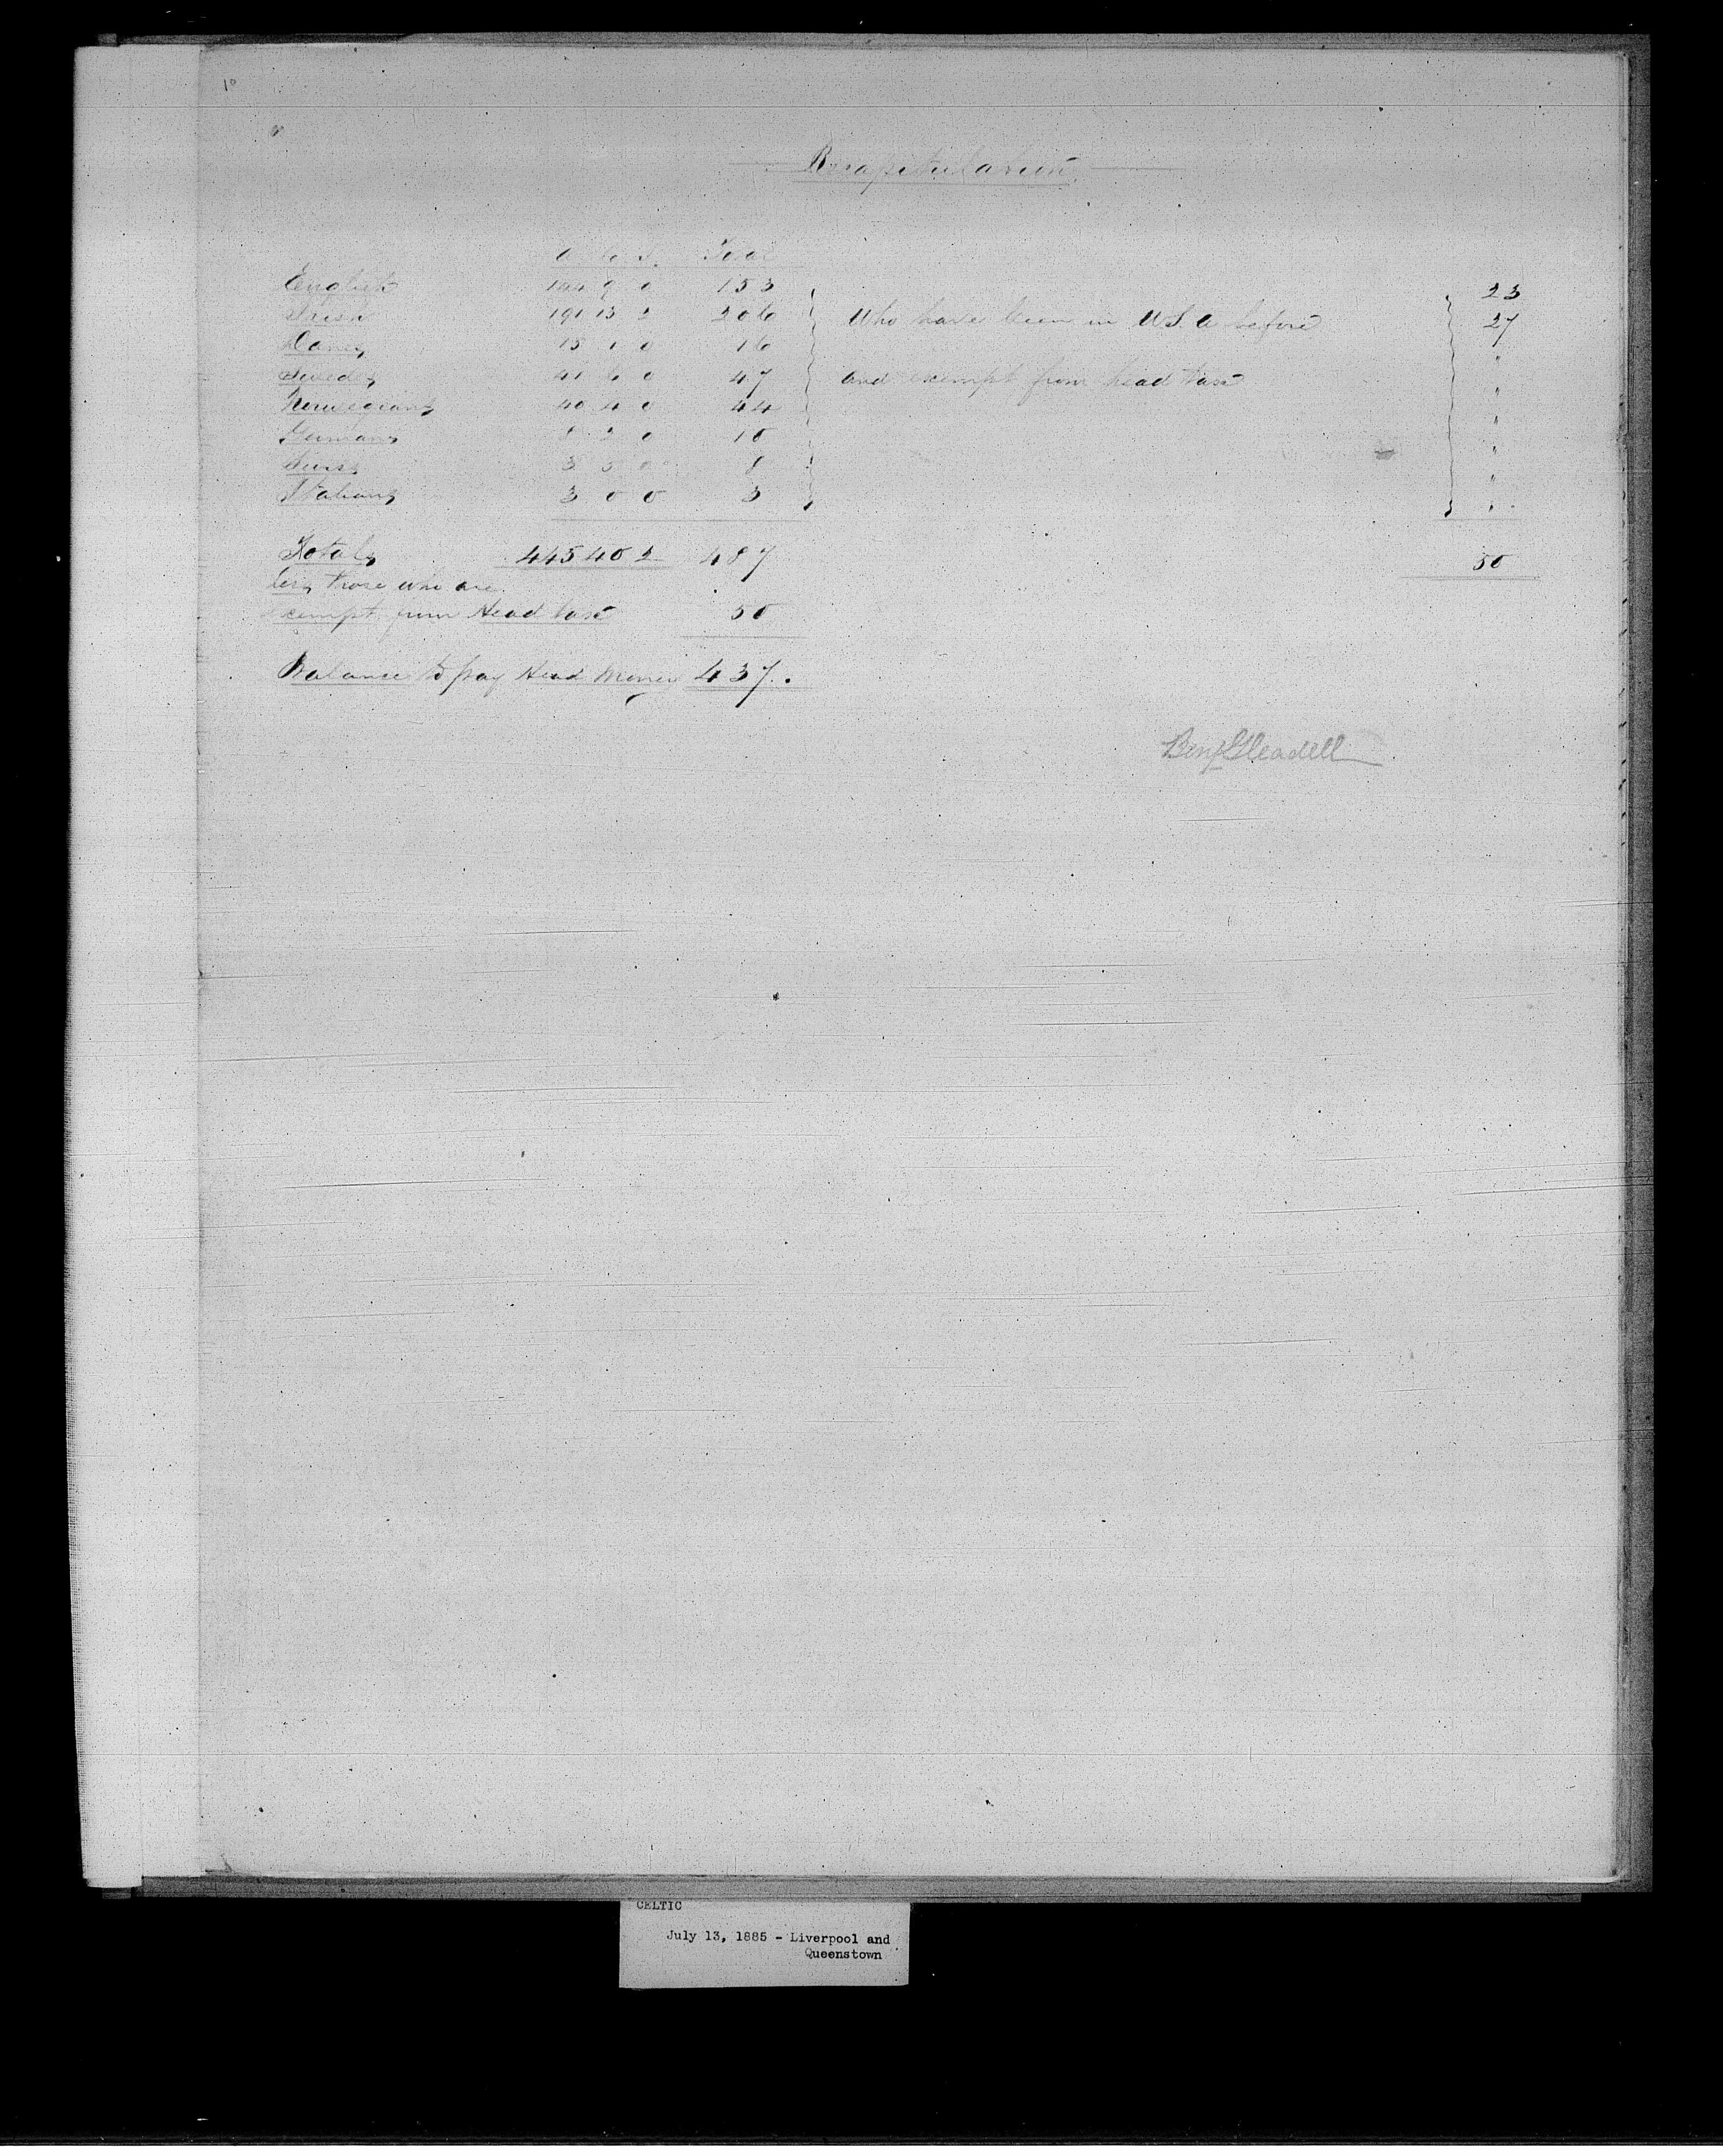 10
Recapitulation
A C I. Total
English 144 9 0 153 23
Irish 191 13 2 206 Who have been in U.S.A before 27
Danes 15 1 0 16 "
Swedes 41 6 0 47 and exempt from head tax "
Norwegians 40 4 0 44 "
Germans 8 2 0 10 "
Swiss 3 5 0 8 "
Italians 3 0 0 3 "
Totals 445 40 2 487 50
less those who are
exempt from Head tax 50
Balance to pay Head Money 437.
Benj Gleadell
CELTIC
July 13, 1885 - Liverpool and
Queenstown